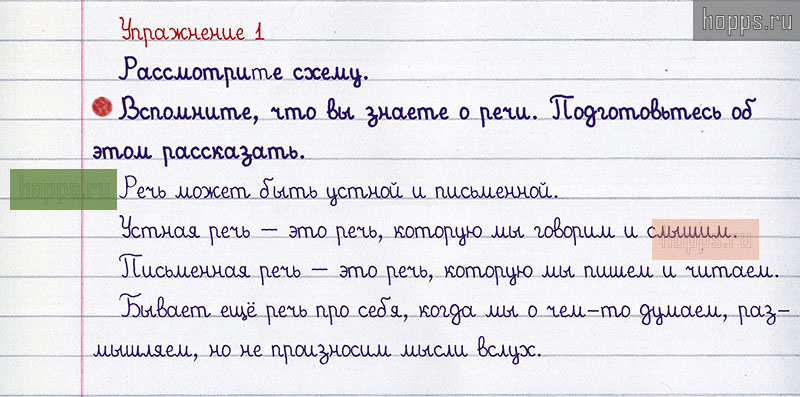 hopps.ru
Упражнение 1
Рассмотрите схему.
Вспомните, что вы знаете о речи. Подготовьтесь об
этом рассказать.
hopps.ru
Речь может быть устной и письменной.
Устная речь — это речь, которую мы говорим и слышим.
hopps.ru
Письменная речь — это речь, которую мы пишем и читаем.
Бывает ещё речь про себя, когда мы о чем-то думаем, раз-
мышляем, но не произносим мысли вслух.